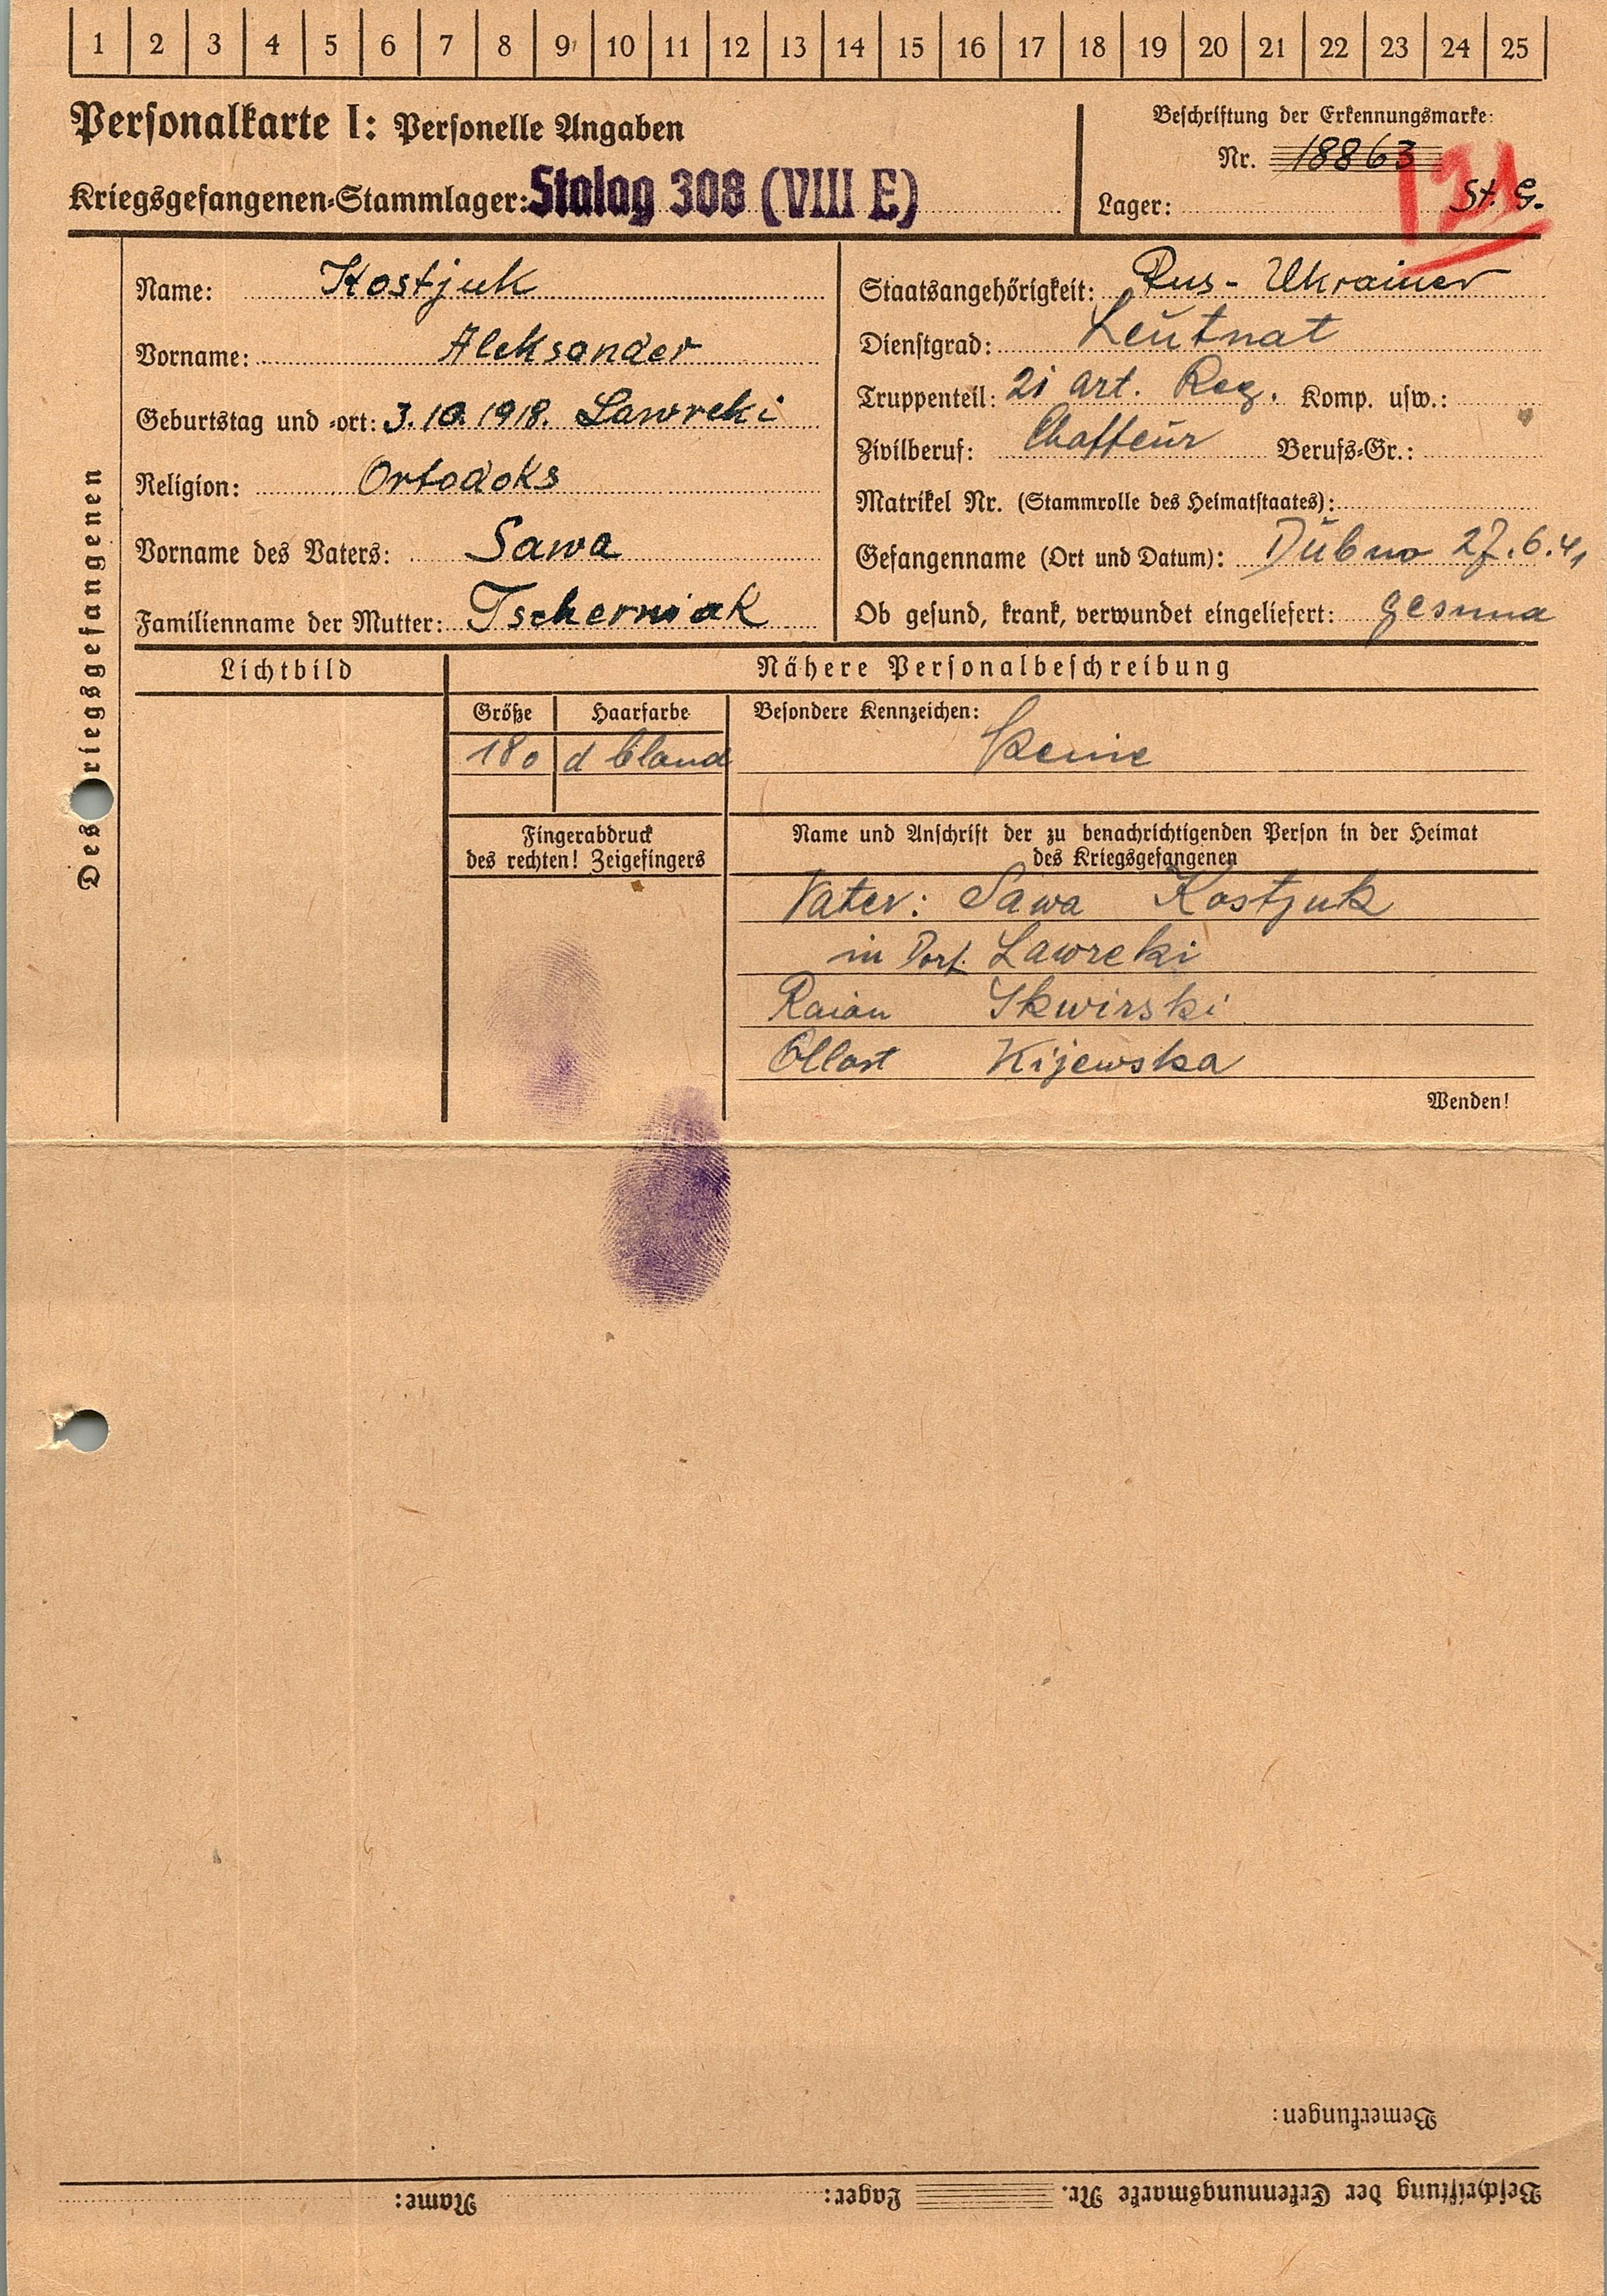 1 2 3 4 5 6 7 8 9 10 11 12 13 14 15 16 17 18 19 20 21 22 23 24 25
Personalkarte I: Personelle Angaben
Kriegsgefangenen-Stammlager: Stalag 308 (VIII E)
Beschriftung der Erkennungsmarke:
Nr. 18863
Lager: St. G.
Des Kriegsgefangenen
Name: Kostjuk
Vorname: Aleksander
Geburtstag und -ort: 3.10.1918. Lawreki
Religion: Ortodoks
Vorname des Vaters: Sawa
Familienname der Mutter: Tscherniak
Staatsangehörigkeit: Rus - Ukrainer
Dienstgrad: Leutnat
Truppenteil: 21 art. Reg. Komp. usw.:
Zivilberuf: Chaffeur Berufs-Gr.:
Matrikel Nr. (Stammrolle des Heimatstaates):
Gefangenname (Ort und Datum): Dubno 27.6.41
Ob gesund, krank, verwundet eingeliefert: gesund
Lichtbild
Nähere Personalbeschreibung
Größe Haarfarbe
180 d bland
Besondere Kennzeichen:
Keine
Fingerabdruck
des rechten! Zeigefingers
Name und Anschrift der zu benachrichtigenden Person in der Heimat
des Kriegsgefangenen
Vater: Sawa Kostjuk
in Dorf. Lawreki
Raion Skwirski
Oblast Kijewska
Wenden!
Bemerkungen:
Beschriftung der Erkennungsmarke Nr. Lager: Name: